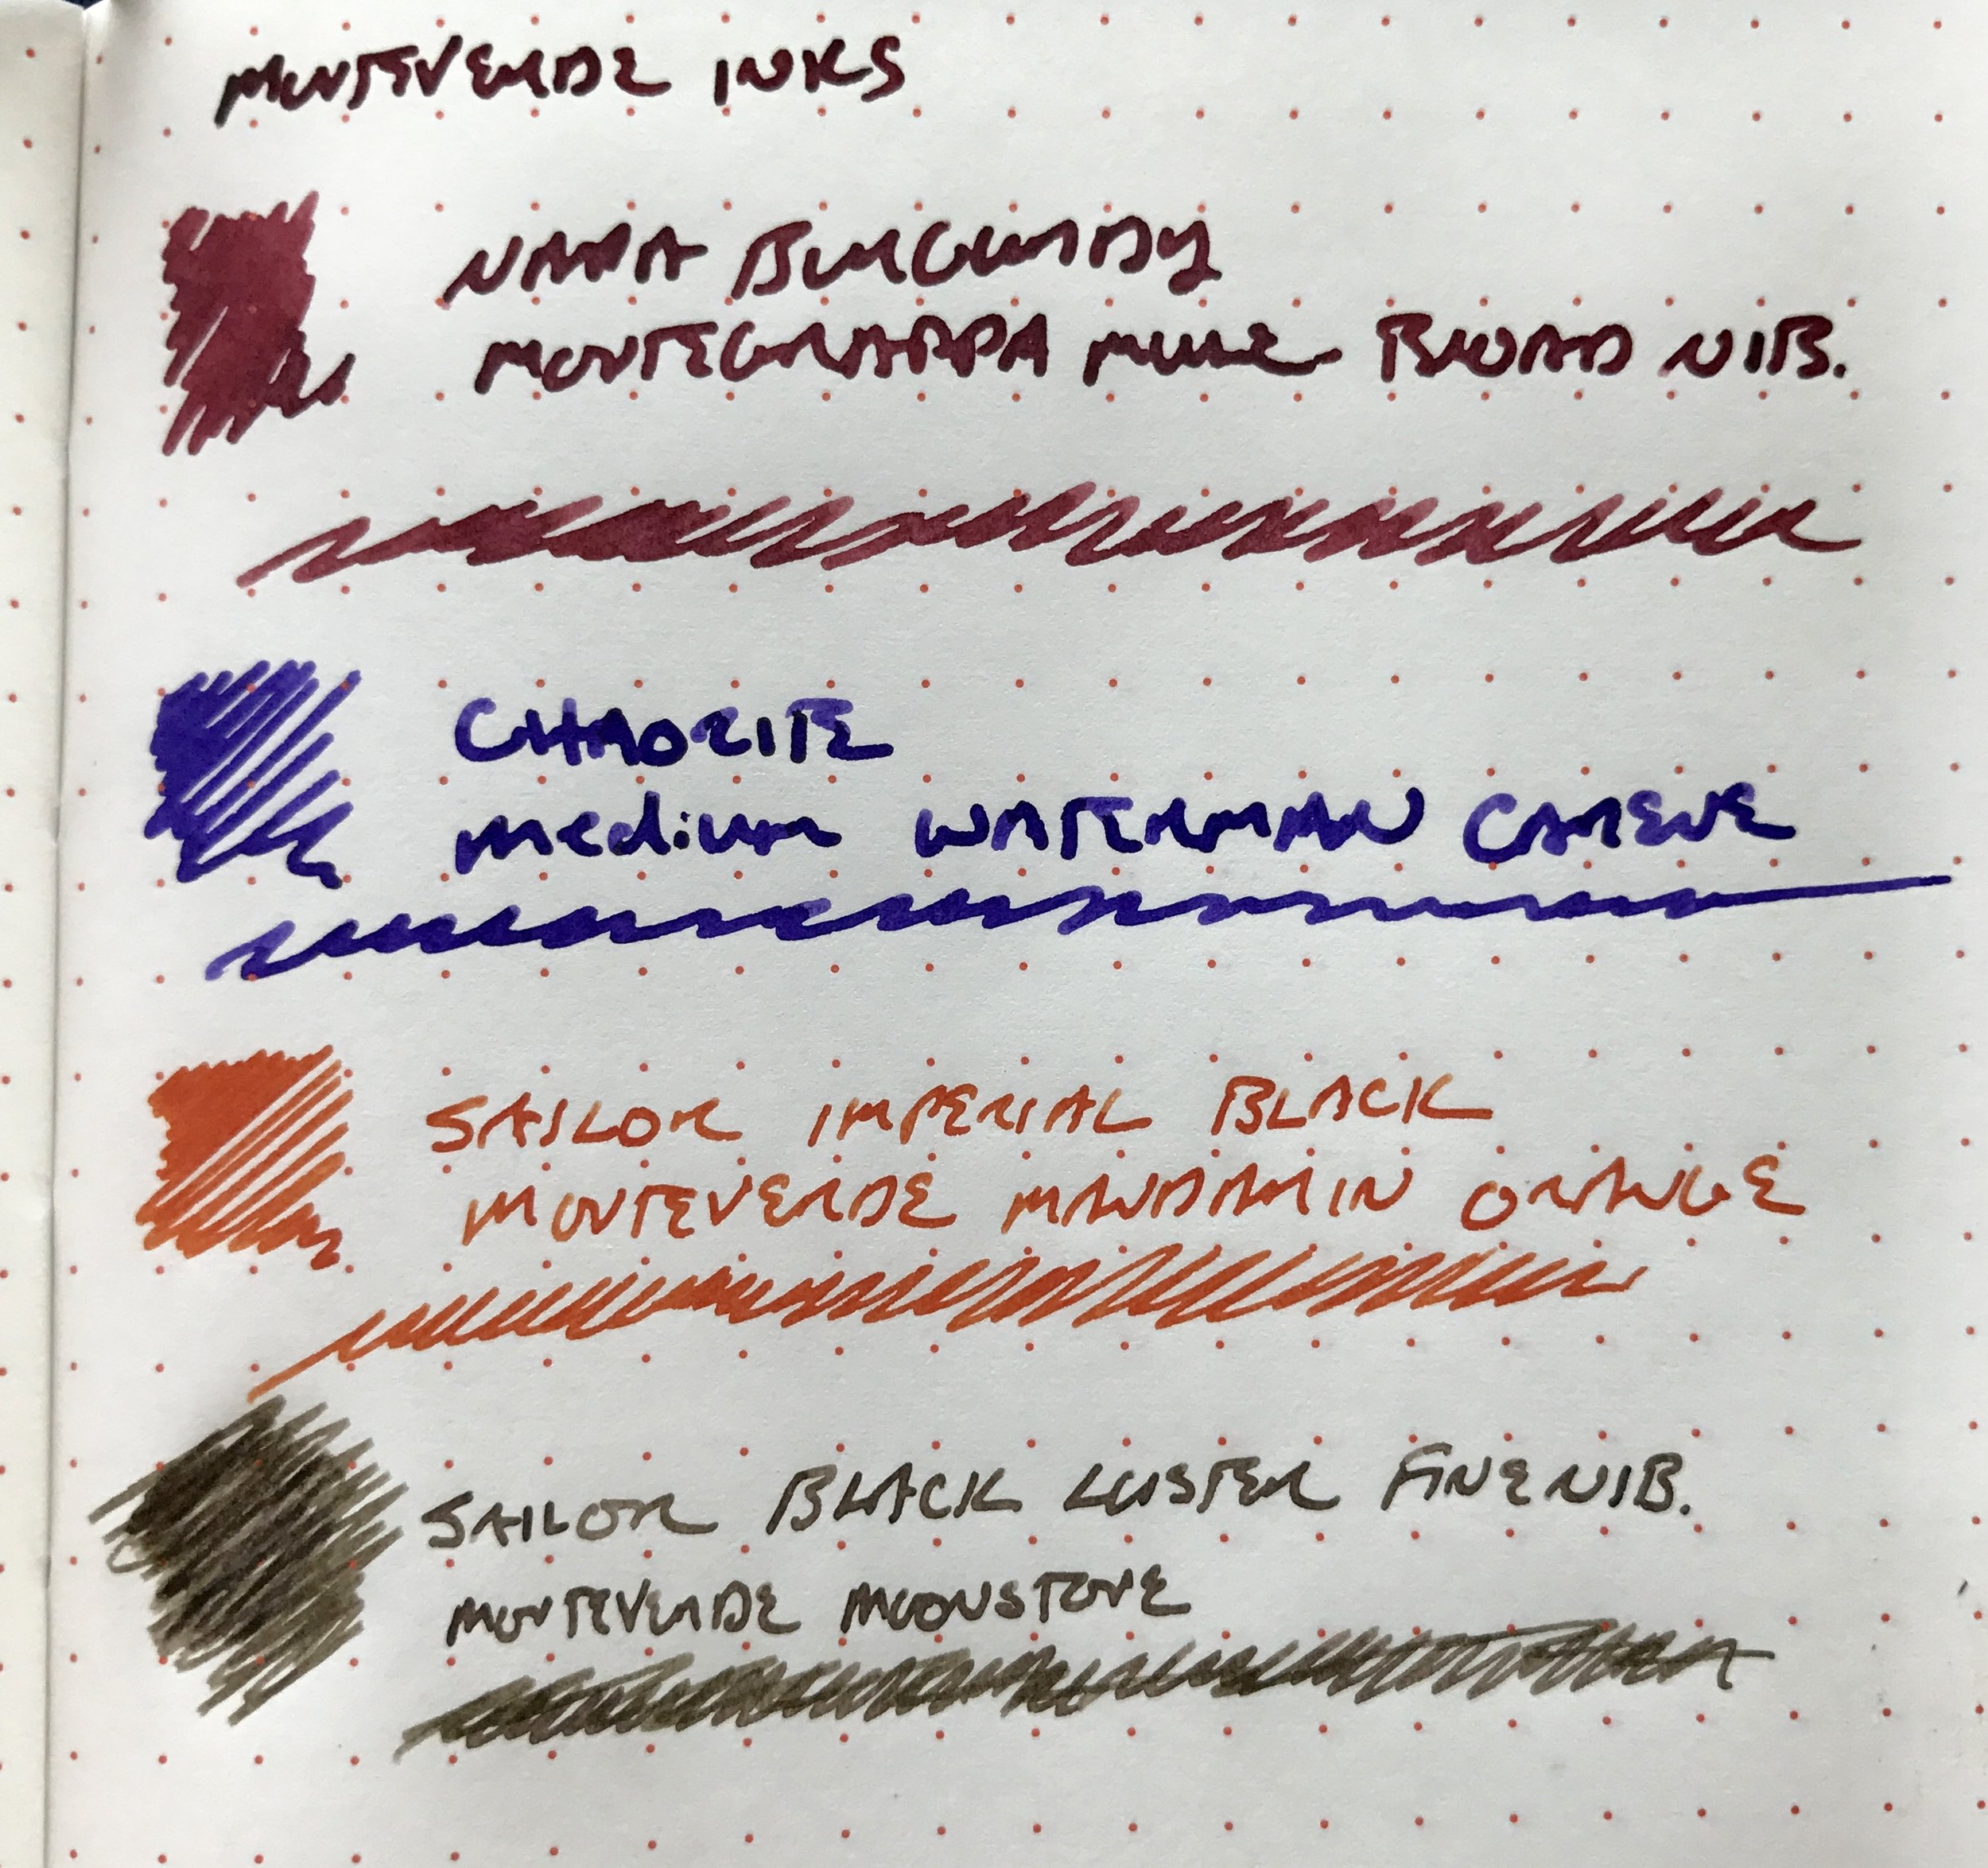 MONTEVERDE INKS
NAPA BURGUNDY
MONTEGRAPPA MULE BROAD NIB.
CHAROITE
medium WATERMAN CARENE
SAILOR IMPERIAL BLACK
MONTEVERDE MANDARIN ORANGE
SAILOR BLACK LUSTER FINE NIB.
MONTEVERDE MOONSTONE